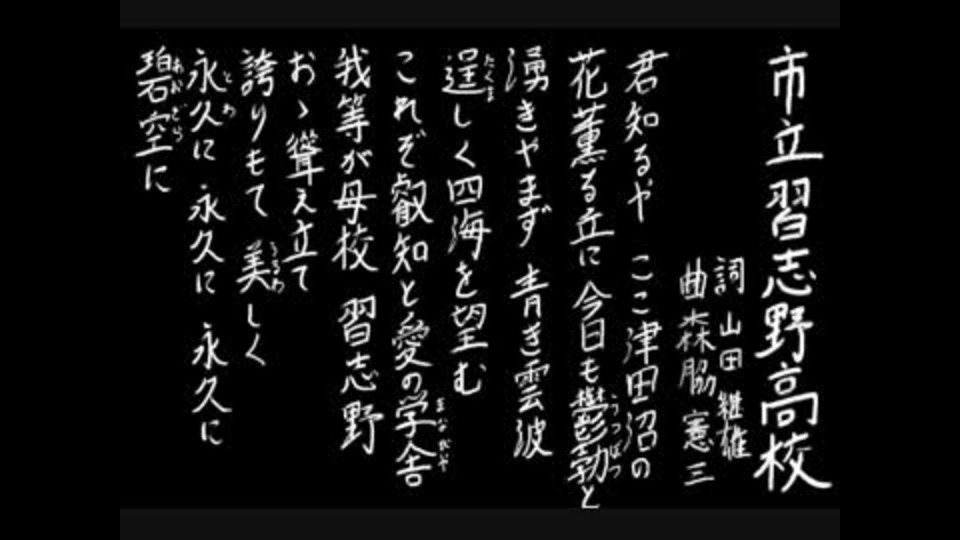 市立習志野高校
詞 山田 継雄
曲 森脇 憲三
君知るや ここ津田沼の
花薫る丘に 今日も鬱勃と
湧きやまず 青き雲波
逞しく四海を望む
これぞ叡知と愛の学舎
我等が母校 習志野
おゝ聳え立て
誇りもて 美しく
永久に 永久に 永久に
碧空に